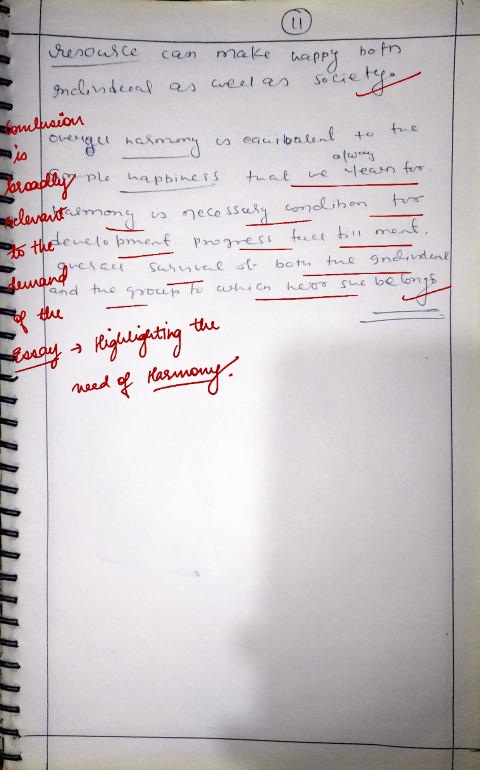 11
resource can make happy both
individual as well as society.
overall harmony is equibalent to the
simple happiness that we always yearn for.
harmony is necessary condition for
development. progress full fill ment.
overall survival of both the individual
and the group to which he or she belongs
Conclusion
is
broadly
relevant
to the
demand
of the
Essay → Highlighting the
need of Harmony.